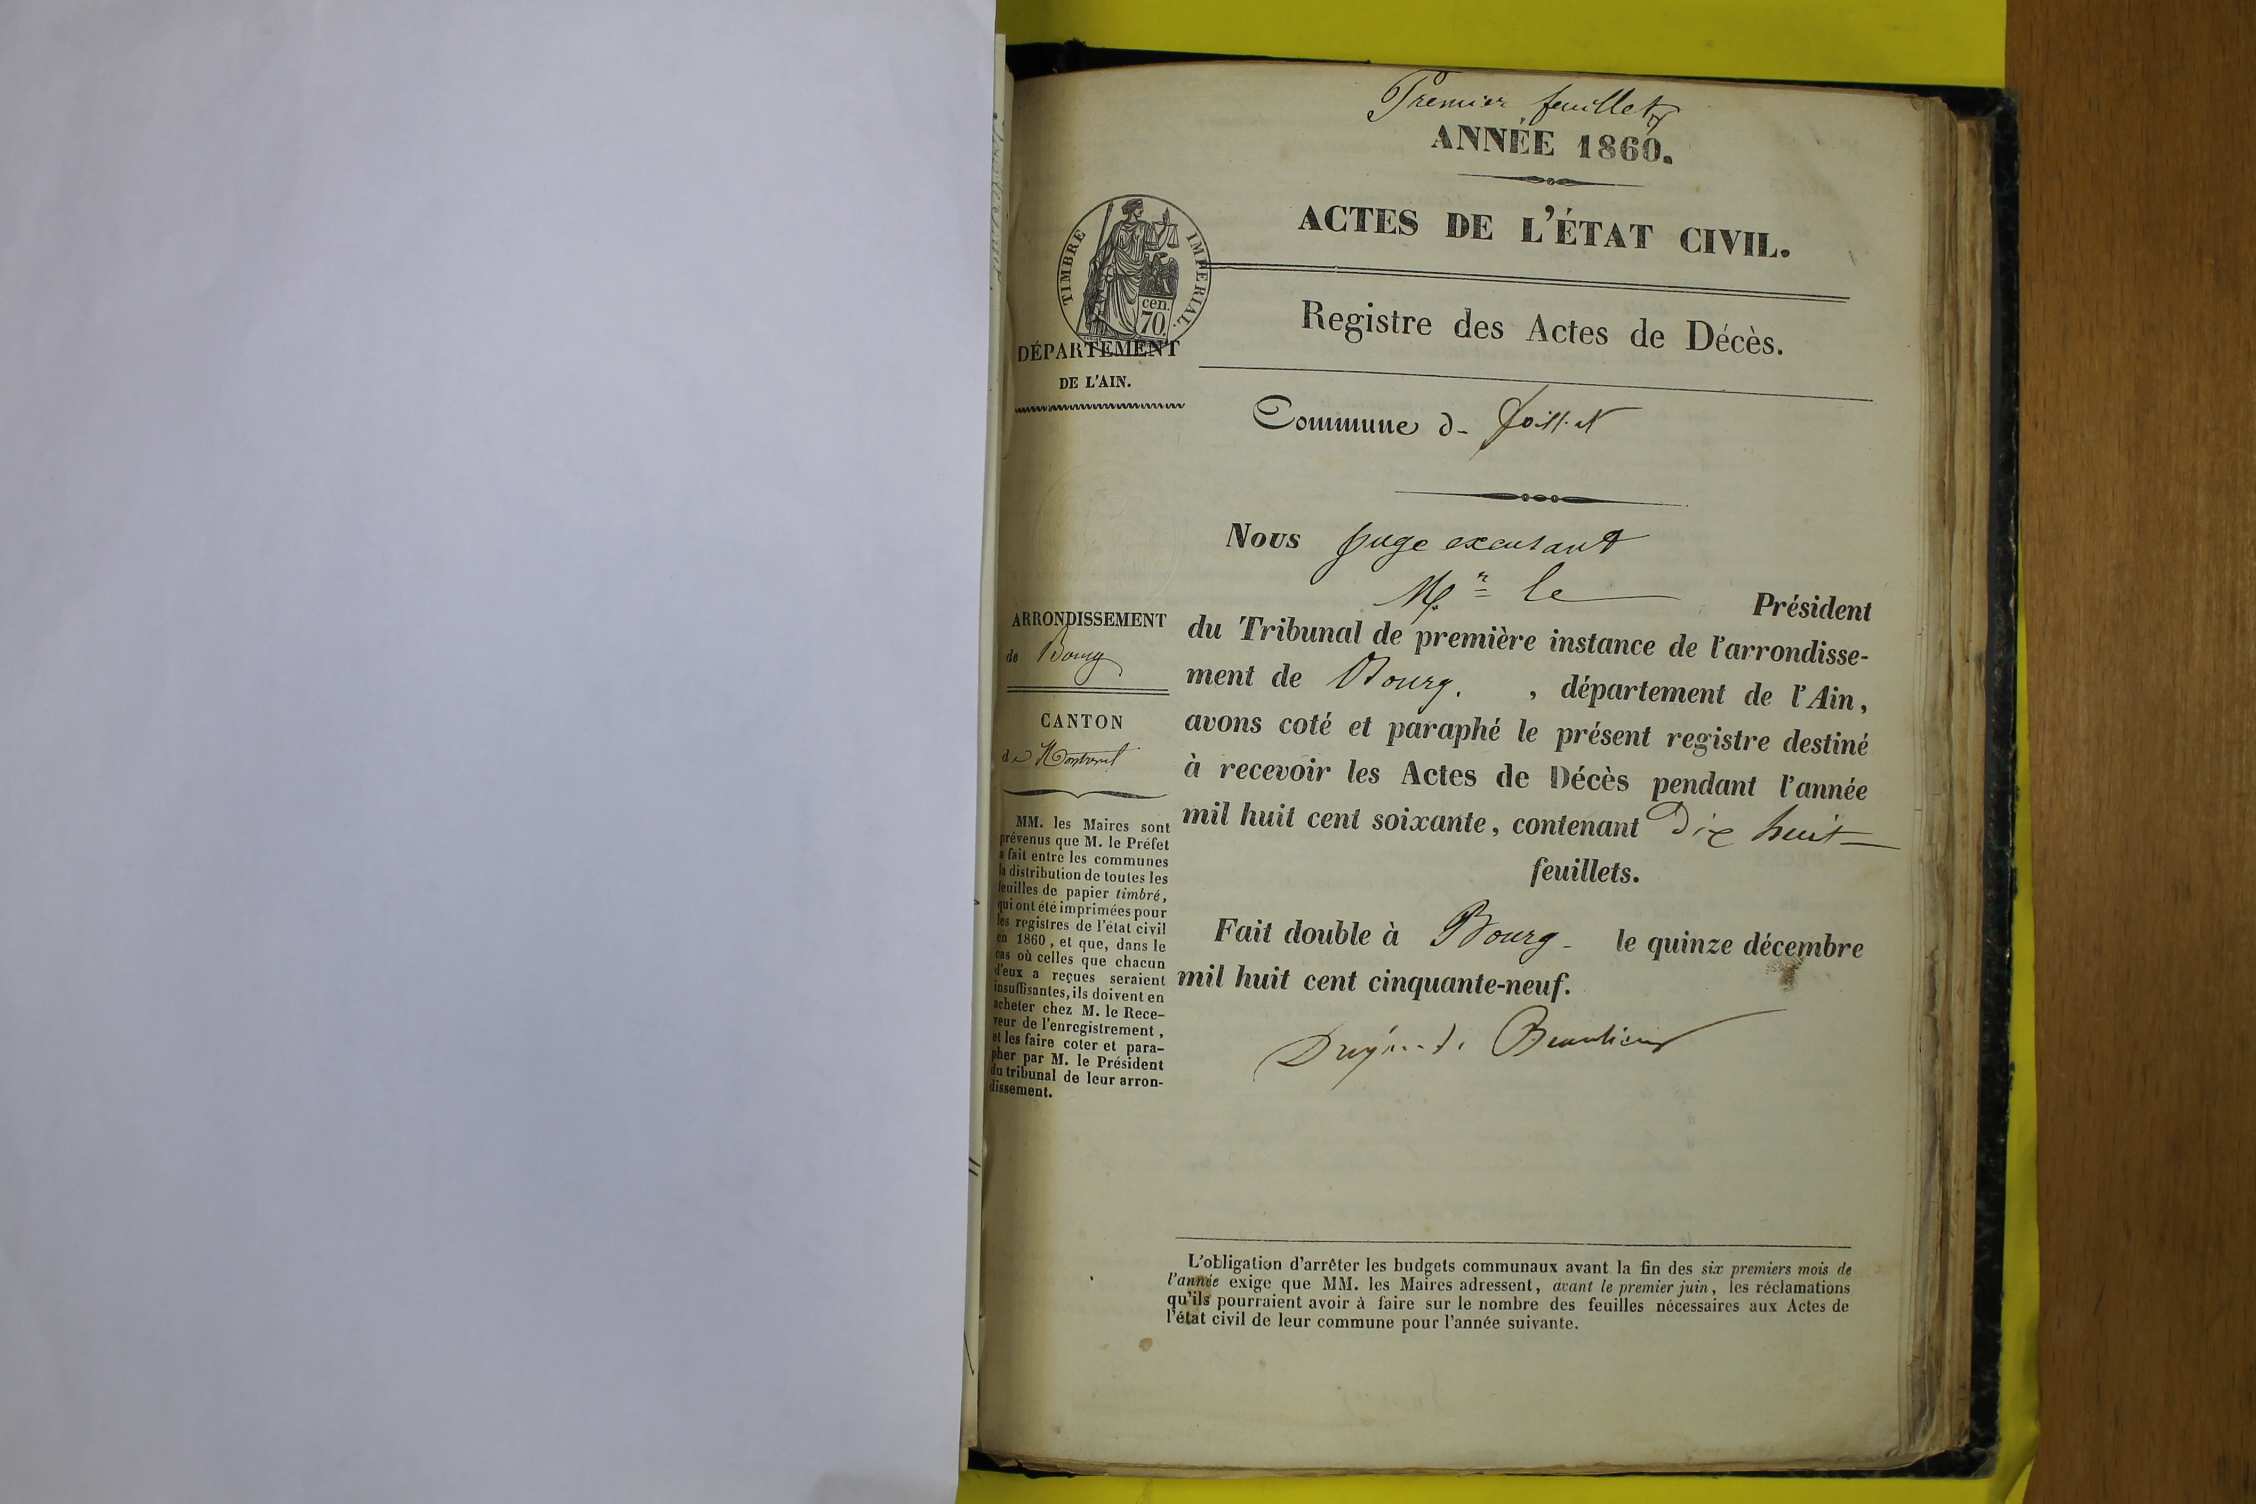 Premier feuillet
ANNÉE 1860.
ACTES DE L'ÉTAT CIVIL.
TIMBRE IMPERIAL.
cen.
70.
Registre des Actes de Décès.
DÉPARTEMENT
DE L'AIN.
Commune d
Nous juge excusant
Mr le Président
du Tribunal de première instance de l'arrondisse-
ment de Bourg. , département de l'Ain,
avons coté et paraphé le présent registre destiné
à recevoir les Actes de Décès pendant l'année
mil huit cent soixante, contenant Dix huit
feuillets.
Fait double à Bourg le quinze décembre
mil huit cent cinquante-neuf.
Beaulieu
ARRONDISSEMENT
de Bourg
CANTON
de Montrevel
MM. les Maires sont
prévenus que M. le Préfet
a fait entre les communes
la distribution de toutes les
feuilles de papier timbré,
qui ont été imprimées pour
les registres de l'état civil
en 1860, et que, dans le
cas où celles que chacun
d'eux a reçues seraient
insuffisantes, ils doivent en
acheter chez M. le Rece-
veur de l'enregistrement,
et les faire coter et para-
pher par M. le Président
du tribunal de leur arron-
dissement.
L'obligation d'arrêter les budgets communaux avant la fin des six premiers mois de
l'année exige que MM. les Maires adressent, avant le premier juin, les réclamations
qu'ils pourraient avoir à faire sur le nombre des feuilles nécessaires aux Actes de
l'état civil de leur commune pour l'année suivante.